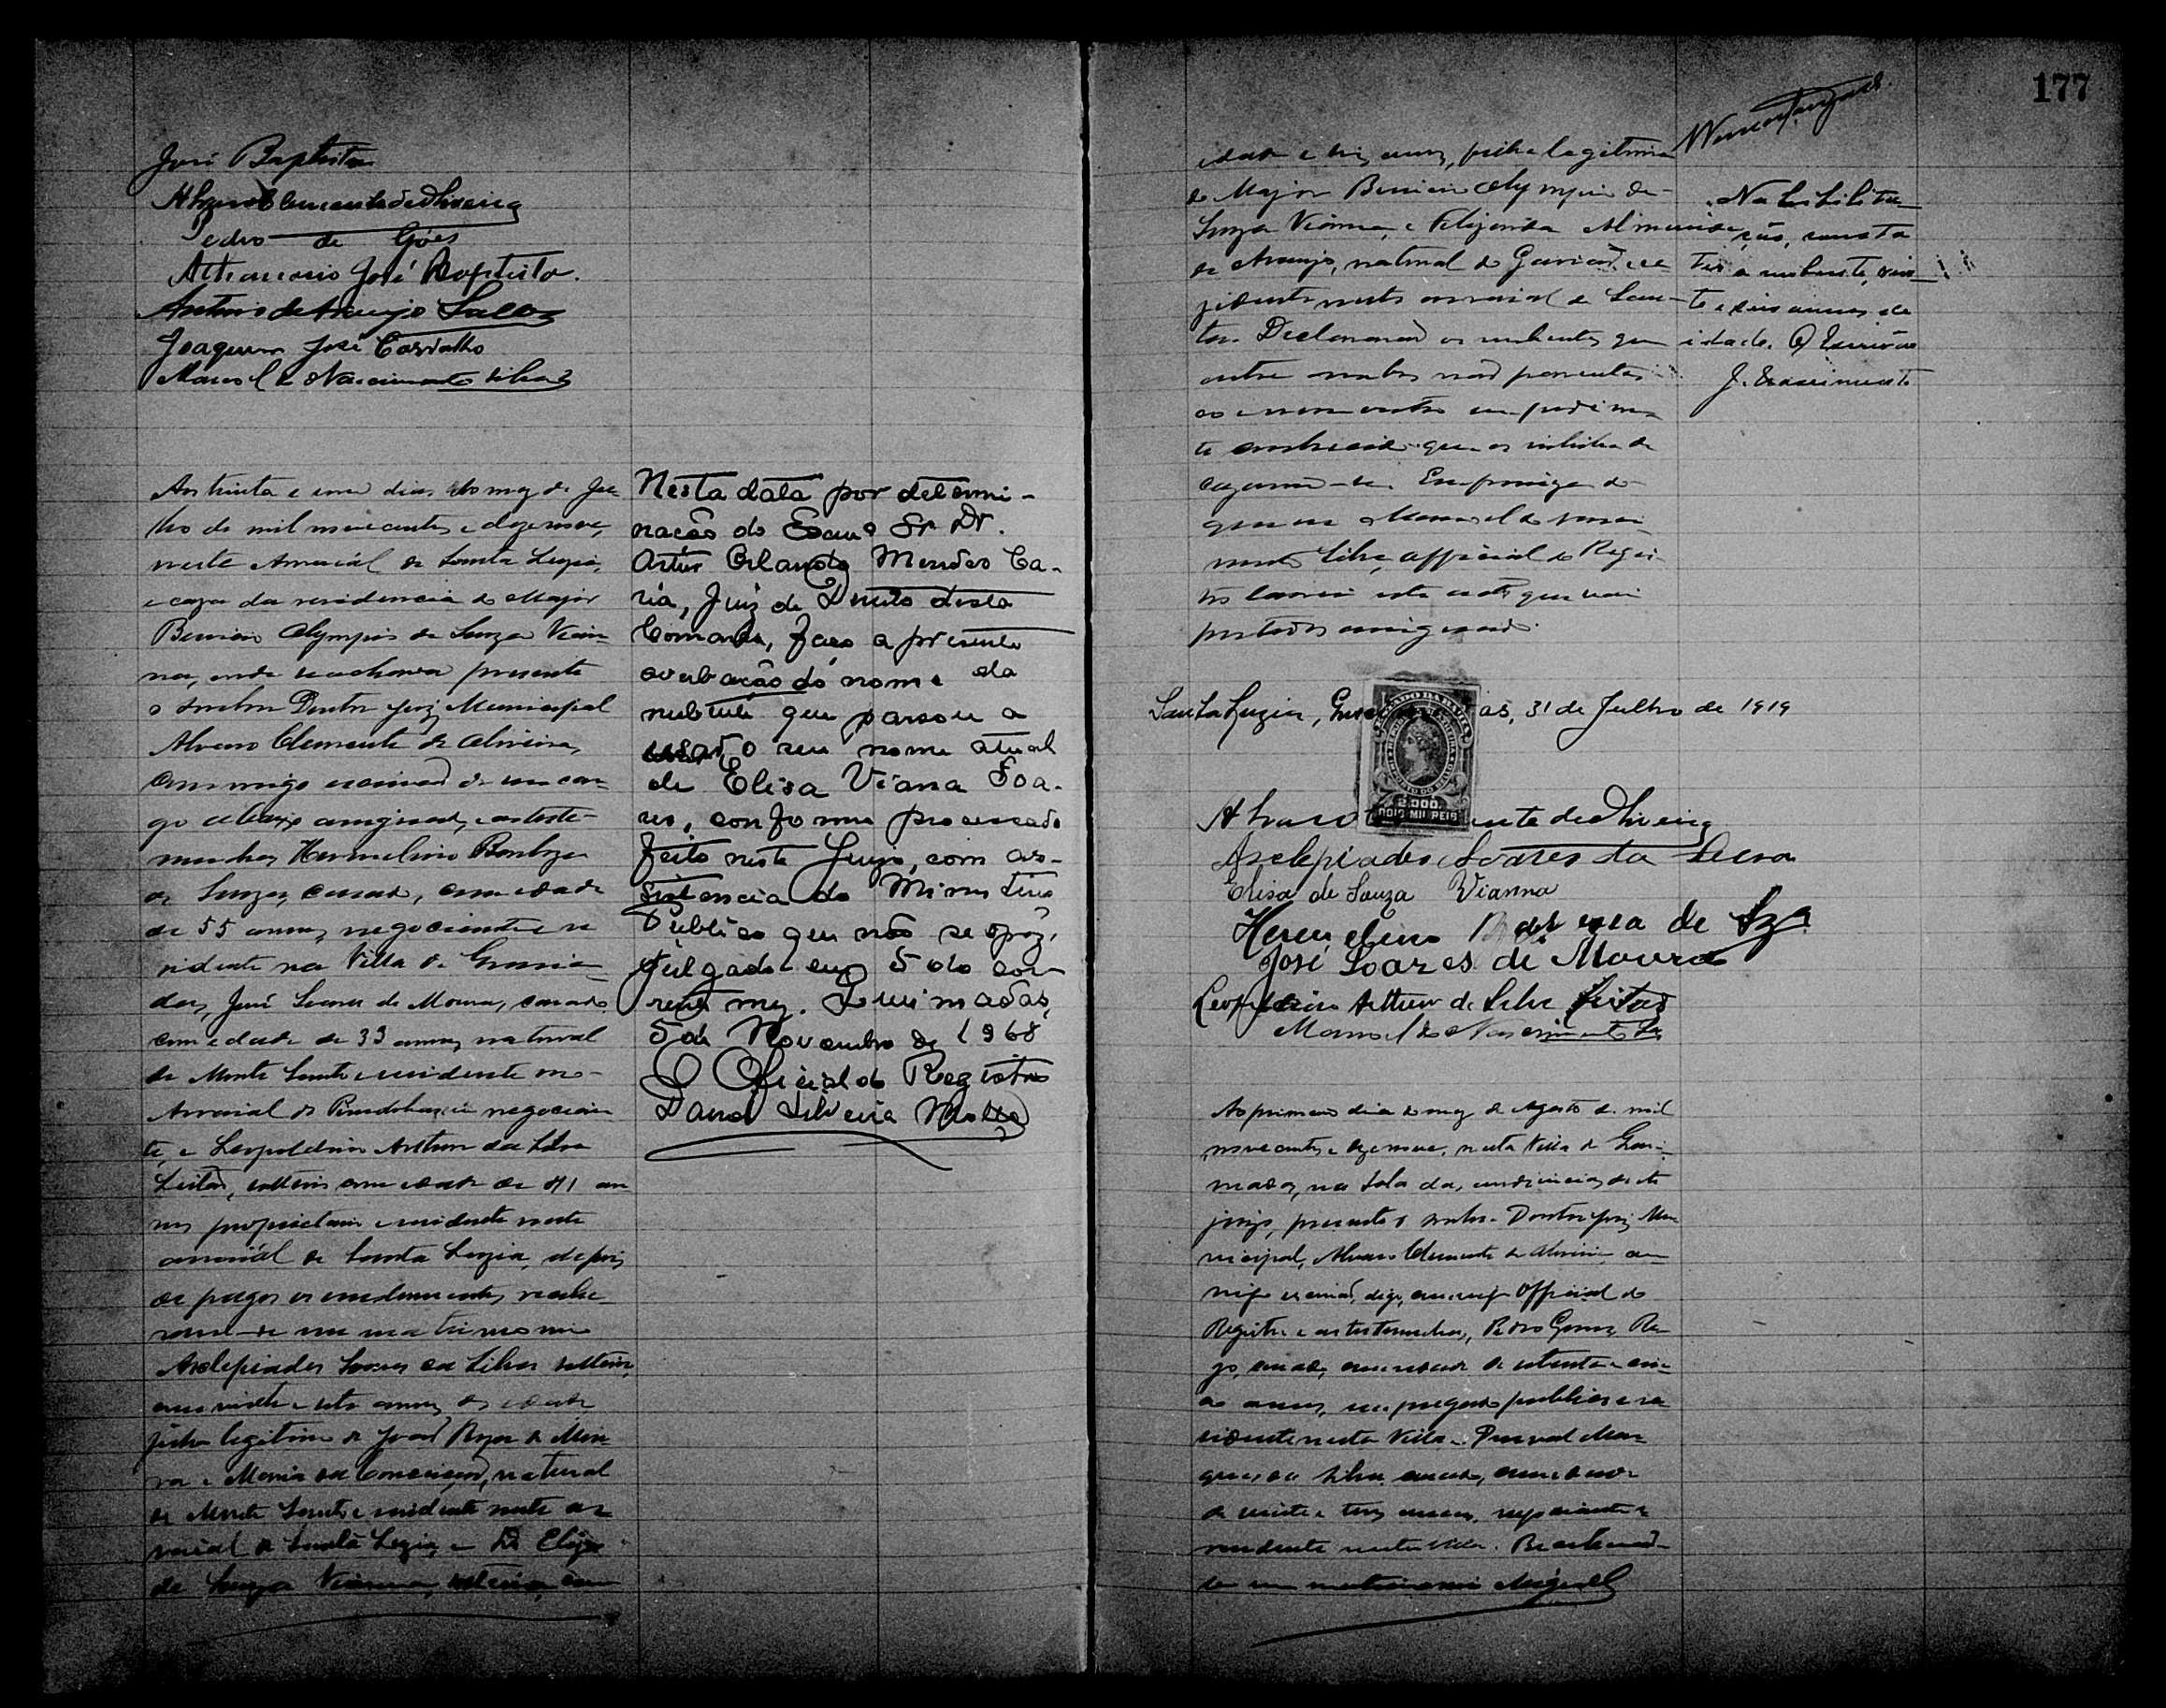 José Baptista
Alvaro Clemente de Oliveira
Pedro de Góes
Athanasio José Baptista.
Antonio de Araujo Salles
Joaquim José Carvalho
Manoel do Nascimento Silva
Aos trinta e um dias do mez de Ju
lho de mil nove centos e dezenove,
neste Arraial de Santa Luzia,
e caza da residencia do Major
Olympio de Souza Vian
na, onde se achava presente
o senhor Doutor Juiz Municipal
Alvaro Clemente de Oliveira,
commigo escrivão de seu car
go abaixo assignado, e as teste-
munhas Hermelino Barboza
de Souza, casado, com edade
de 55 annos, negociante re
zidente na Villa de
José Soares de Moura, casado,
com edade de 33 annos, natural
de Monte Santo e residente no
Arraial de negocian
te, e Leopoldino Arthur da Silva
Leitão, solteiro com edade de 41 an
nos proprietario e residente neste
arraial de Santa Luzia, depois
de pagos os emolumentos, realis
aram-se em matrimonio
Asclepiades Soares da Silva, solteiro,
com vinte e oito annos de edade
filho legitimo de João de Mou
ra e Maria da Conceição, natural
de Monte Santo e residente neste ar
raial de Santa Luzia, e D. Eliza
de Souza Vianna, solteira, com
Nesta data por determi-
nação do Exmo Sr Dr.
Artur Orlando Mendes Ca-
ria, Juiz de Direito desta
Comarca, faço a presente
averbação do nome da
nubente que passou a
usar o seu nome atual
de Elisa Viana Soa-
res, conforme processado
feito neste Juizo, com as-
sistencia do Ministerio
Público que não se opoz,
julgado em 5 do cor-
rente mez. Queimadas,
5 de Novembro de 1968
O Oficial do Registro
Silveira Motta
177
edade e annos, filha legitima
do Major Olympio de
Souza Vianna, e
de Araujo, natural de e re
zidente neste arraial de San
ta. Declararam os nubentes que
entre ambos não parentes
co e nem outro impedimen
te
cazarem-se. Em firmeza do
que eu Manoel do Nasci
mento Silva, official do Regis
tro lavrei este acto que vai
por todos assignado.
Na habilita
ção, consta
ter a nubente, vin
te e seis annos de
idade. O Escrivão
J. Nascimento
Santa Luzia, as, 31 de Julho de 1919
ESTADO DA BAHIA
2.000
DOIS MIL REIS
Alvaro nte de Oliveira
Asclepiades Soares da Silva
Elisa de Souza Vianna
Hermelino Barboza de Sza
José Soares de Moura
Leopoldino Arthur da Silva Leitão
Manoel do Nascimento Sa
Ao primeiro dia do mez de Agosto de mil
nove centos e dezenove, nesta Villa de Quei
madas, na sala das audiencias deste
juizo, presente o senhor Doutor Juiz Mu
nicipal, Alvaro Clemente de Oliveira, com
migo escrivão, digo, commigo Official do
Registro e as testemunhas, Pedro Gomes Re
go, casado, com edade de e cin
co annos, empregado publico e re
sidente nesta Villa e Mar
ques da Silva, casado, com edade
de vinte e tres annos, negociante e
residente nesta Villa. Receberam-
se em matrimonio Miguel